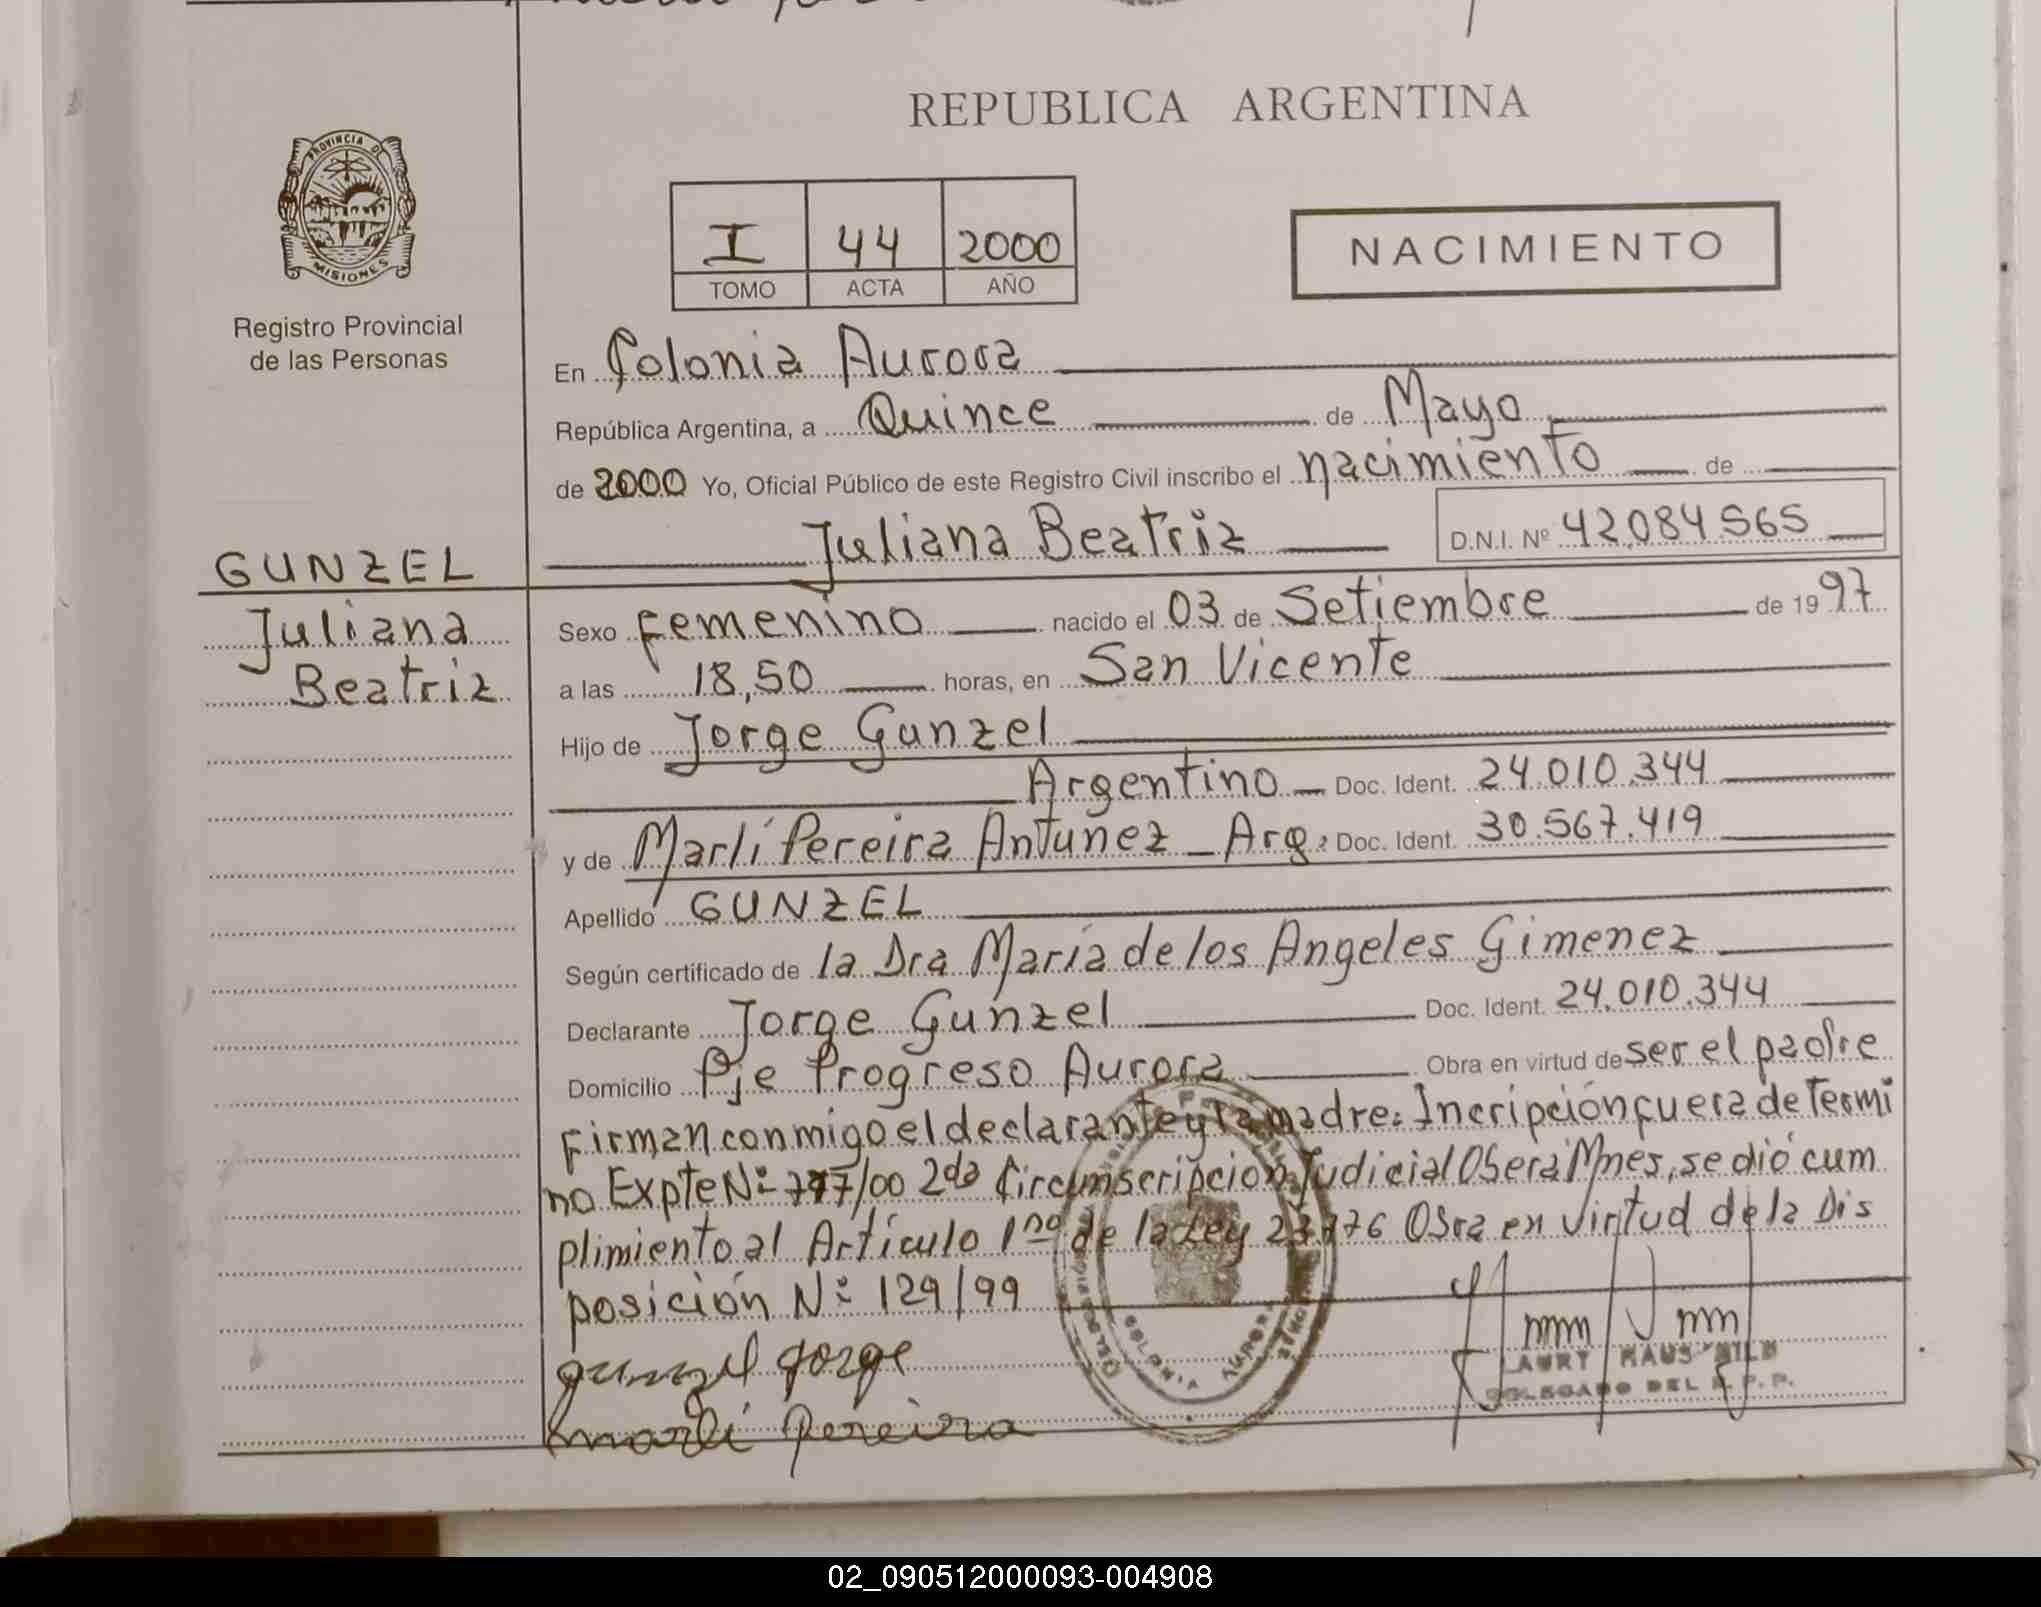 REPUBLICA ARGENTINA
PROVINCIA DE
MISIONES
Registro Provincial
de las Personas
I 44 2000
TOMO ACTA AÑO
NACIMIENTO
En Colonia Aurora
República Argentina, a Quince de Mayo
de 2000 Yo, Oficial Público de este Registro Civil inscribo el nacimiento de
Juliana Beatriz D.N.I. Nº 42.084.565
GUNZEL
Juliana
Beatriz
Sexo Femenino nacido el 03 de Setiembre de 1997
a las 18,50 horas, en San Vicente
Hijo de Jorge Gunzel
Argentino Doc. Ident. 24.010.344
y de Marlí Pereira Antunez _ Arg. Doc. Ident. 30.567.419
Apellido GUNZEL
Según certificado de la Dra María de los Angeles Gimenez
Declarante Jorge Gunzel Doc. Ident. 24.010.344
Domicilio Pje Progreso Aurora Obra en virtud de ser el padre
Firman conmigo el declarante y la madre. Incripción fuera de Termi
no Expte Nº /00 2da Circunscripcion Judicial Obera Mnes, se dió cum
plimiento al Artículo 1ro de la Ley Obra en virtud de la Dis
posición Nº 129/99
gunzel Jorge
marli Pereira
COLONIA AURORA
DELEGADO DEL R. P. P.
02_090512000093-004908